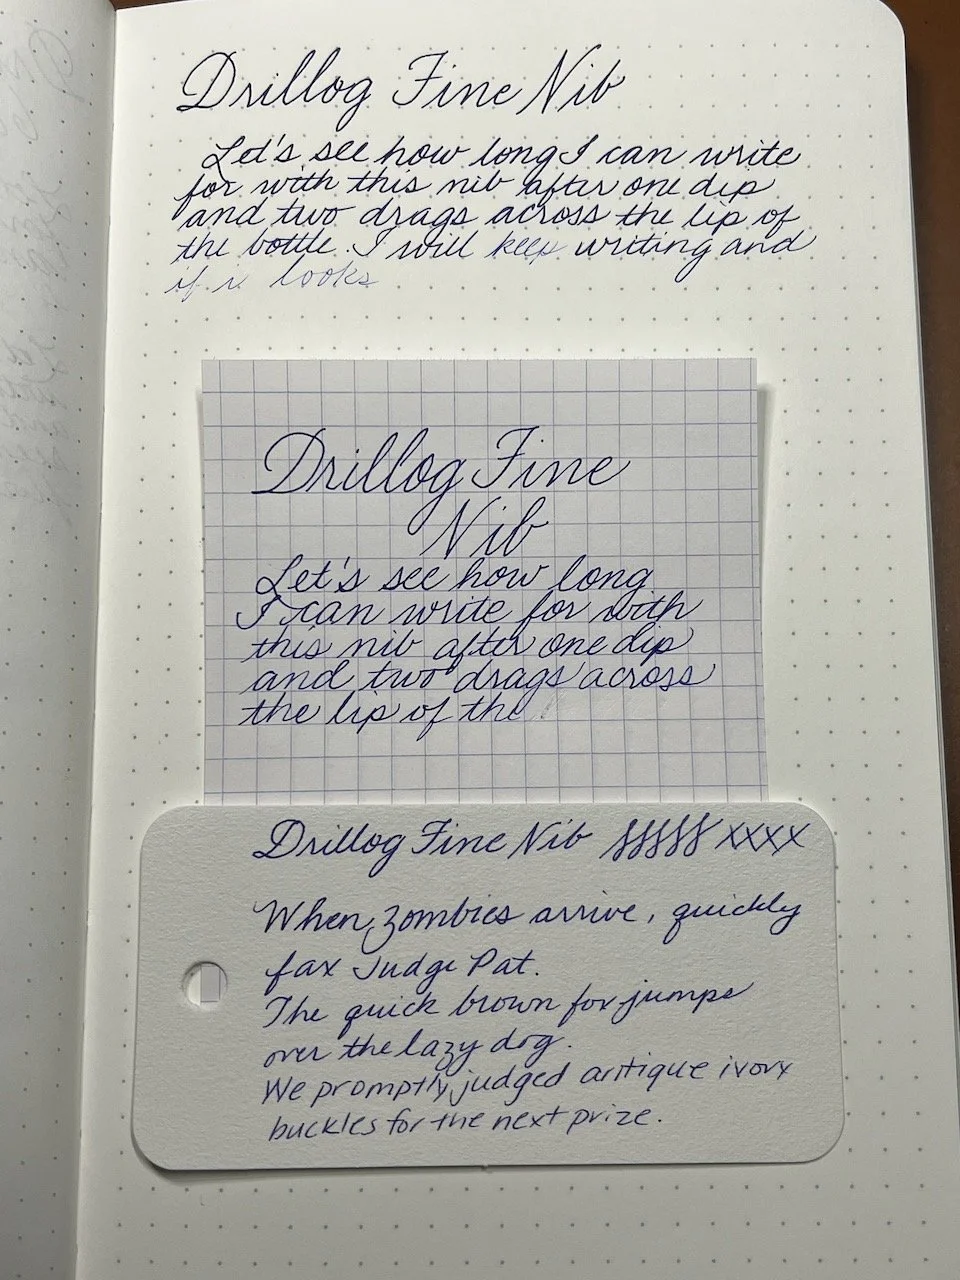 Drillog Fine Nib
Let's see how long I can write
for with this nib after one dip
and two drags across the lip of
the bottle. I will keep writing and
if i looks
Drillog Fine
Nib
Let's see how long
I can write for with
this nib after one dip
and two drags across
the lip of the
Drillog Fine Nib fffff xxxx
When zombies arrive, quickly
fax Judge Pat.
The quick brown fox jumps
over the lazy dog.
We promptly judged antique ivory
buckles for the next prize.